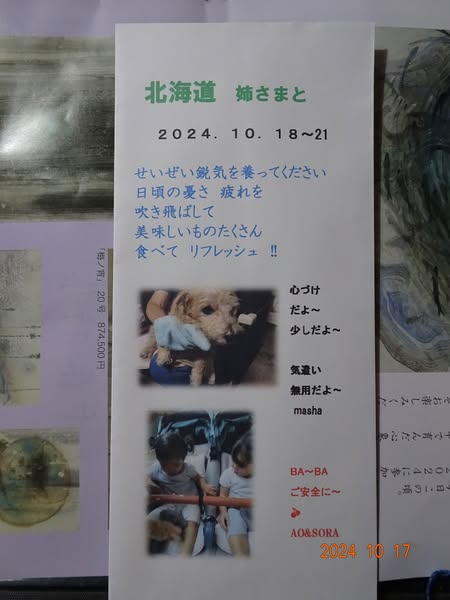 北海道 姉さまと
2024. 10. 18~21
せいぜい鋭気を養ってください
日頃の憂さ 疲れを
吹き飛ばして
美味しいものたくさん
食べて リフレッシュ !!
心づけ
だよ~
少しだよ~
気遣い
無用だよ~
masha
BA~BA
ご安全に~
♪
AO&SORA
2024 10 17
20号 874,500円